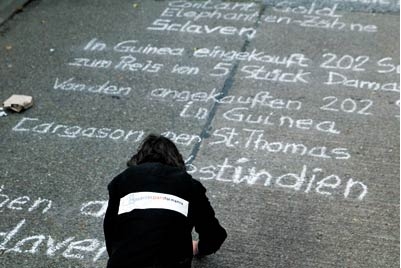 Contant Gold
Elephanten-Zähne
Sclaven
In Guinea eingekauft 202
zum Preis von 5 Stück Damas
Von den angekauften 202
in Guinea
Cargason nen St. Thomas
estindien